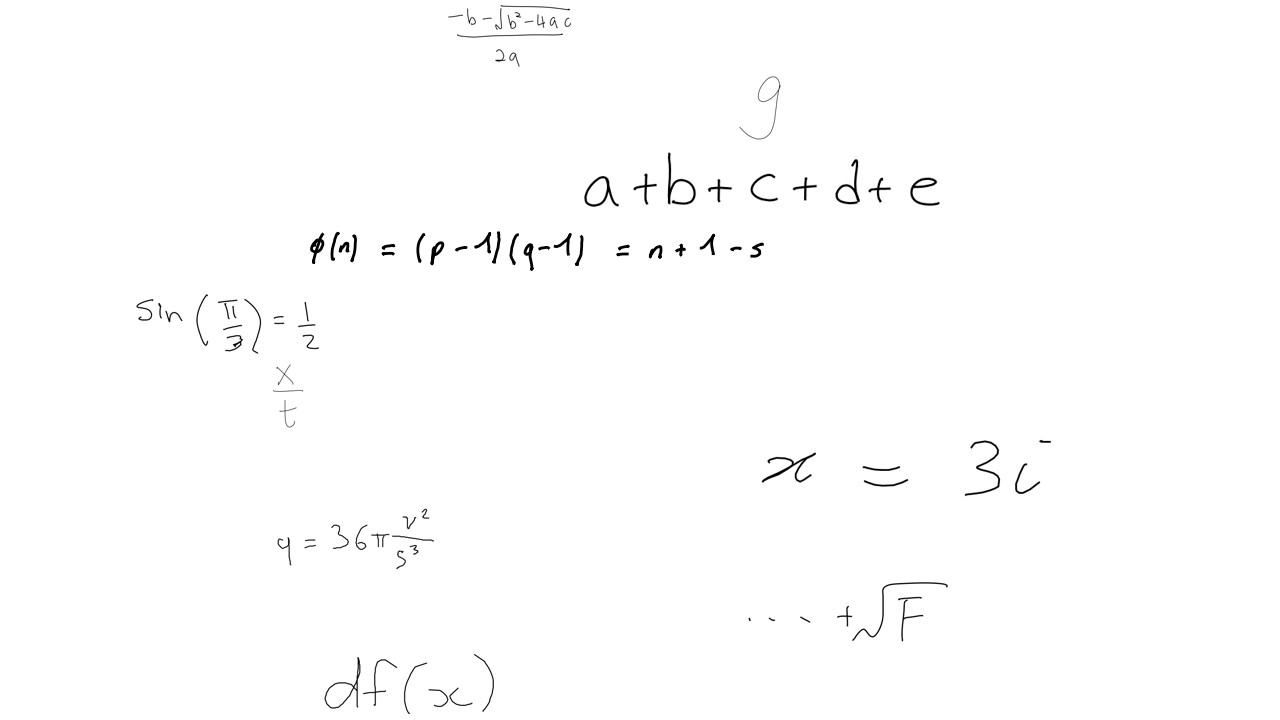 (-b-√(b²-4ac))/(2a)
g
a+b+c+d+e
φ(n) = (p-1)(q-1) = n+1-s
sin(π/3) = 1/2
x/t
x = 3i
q = 36π v²/s³
.... +√F
df(x)